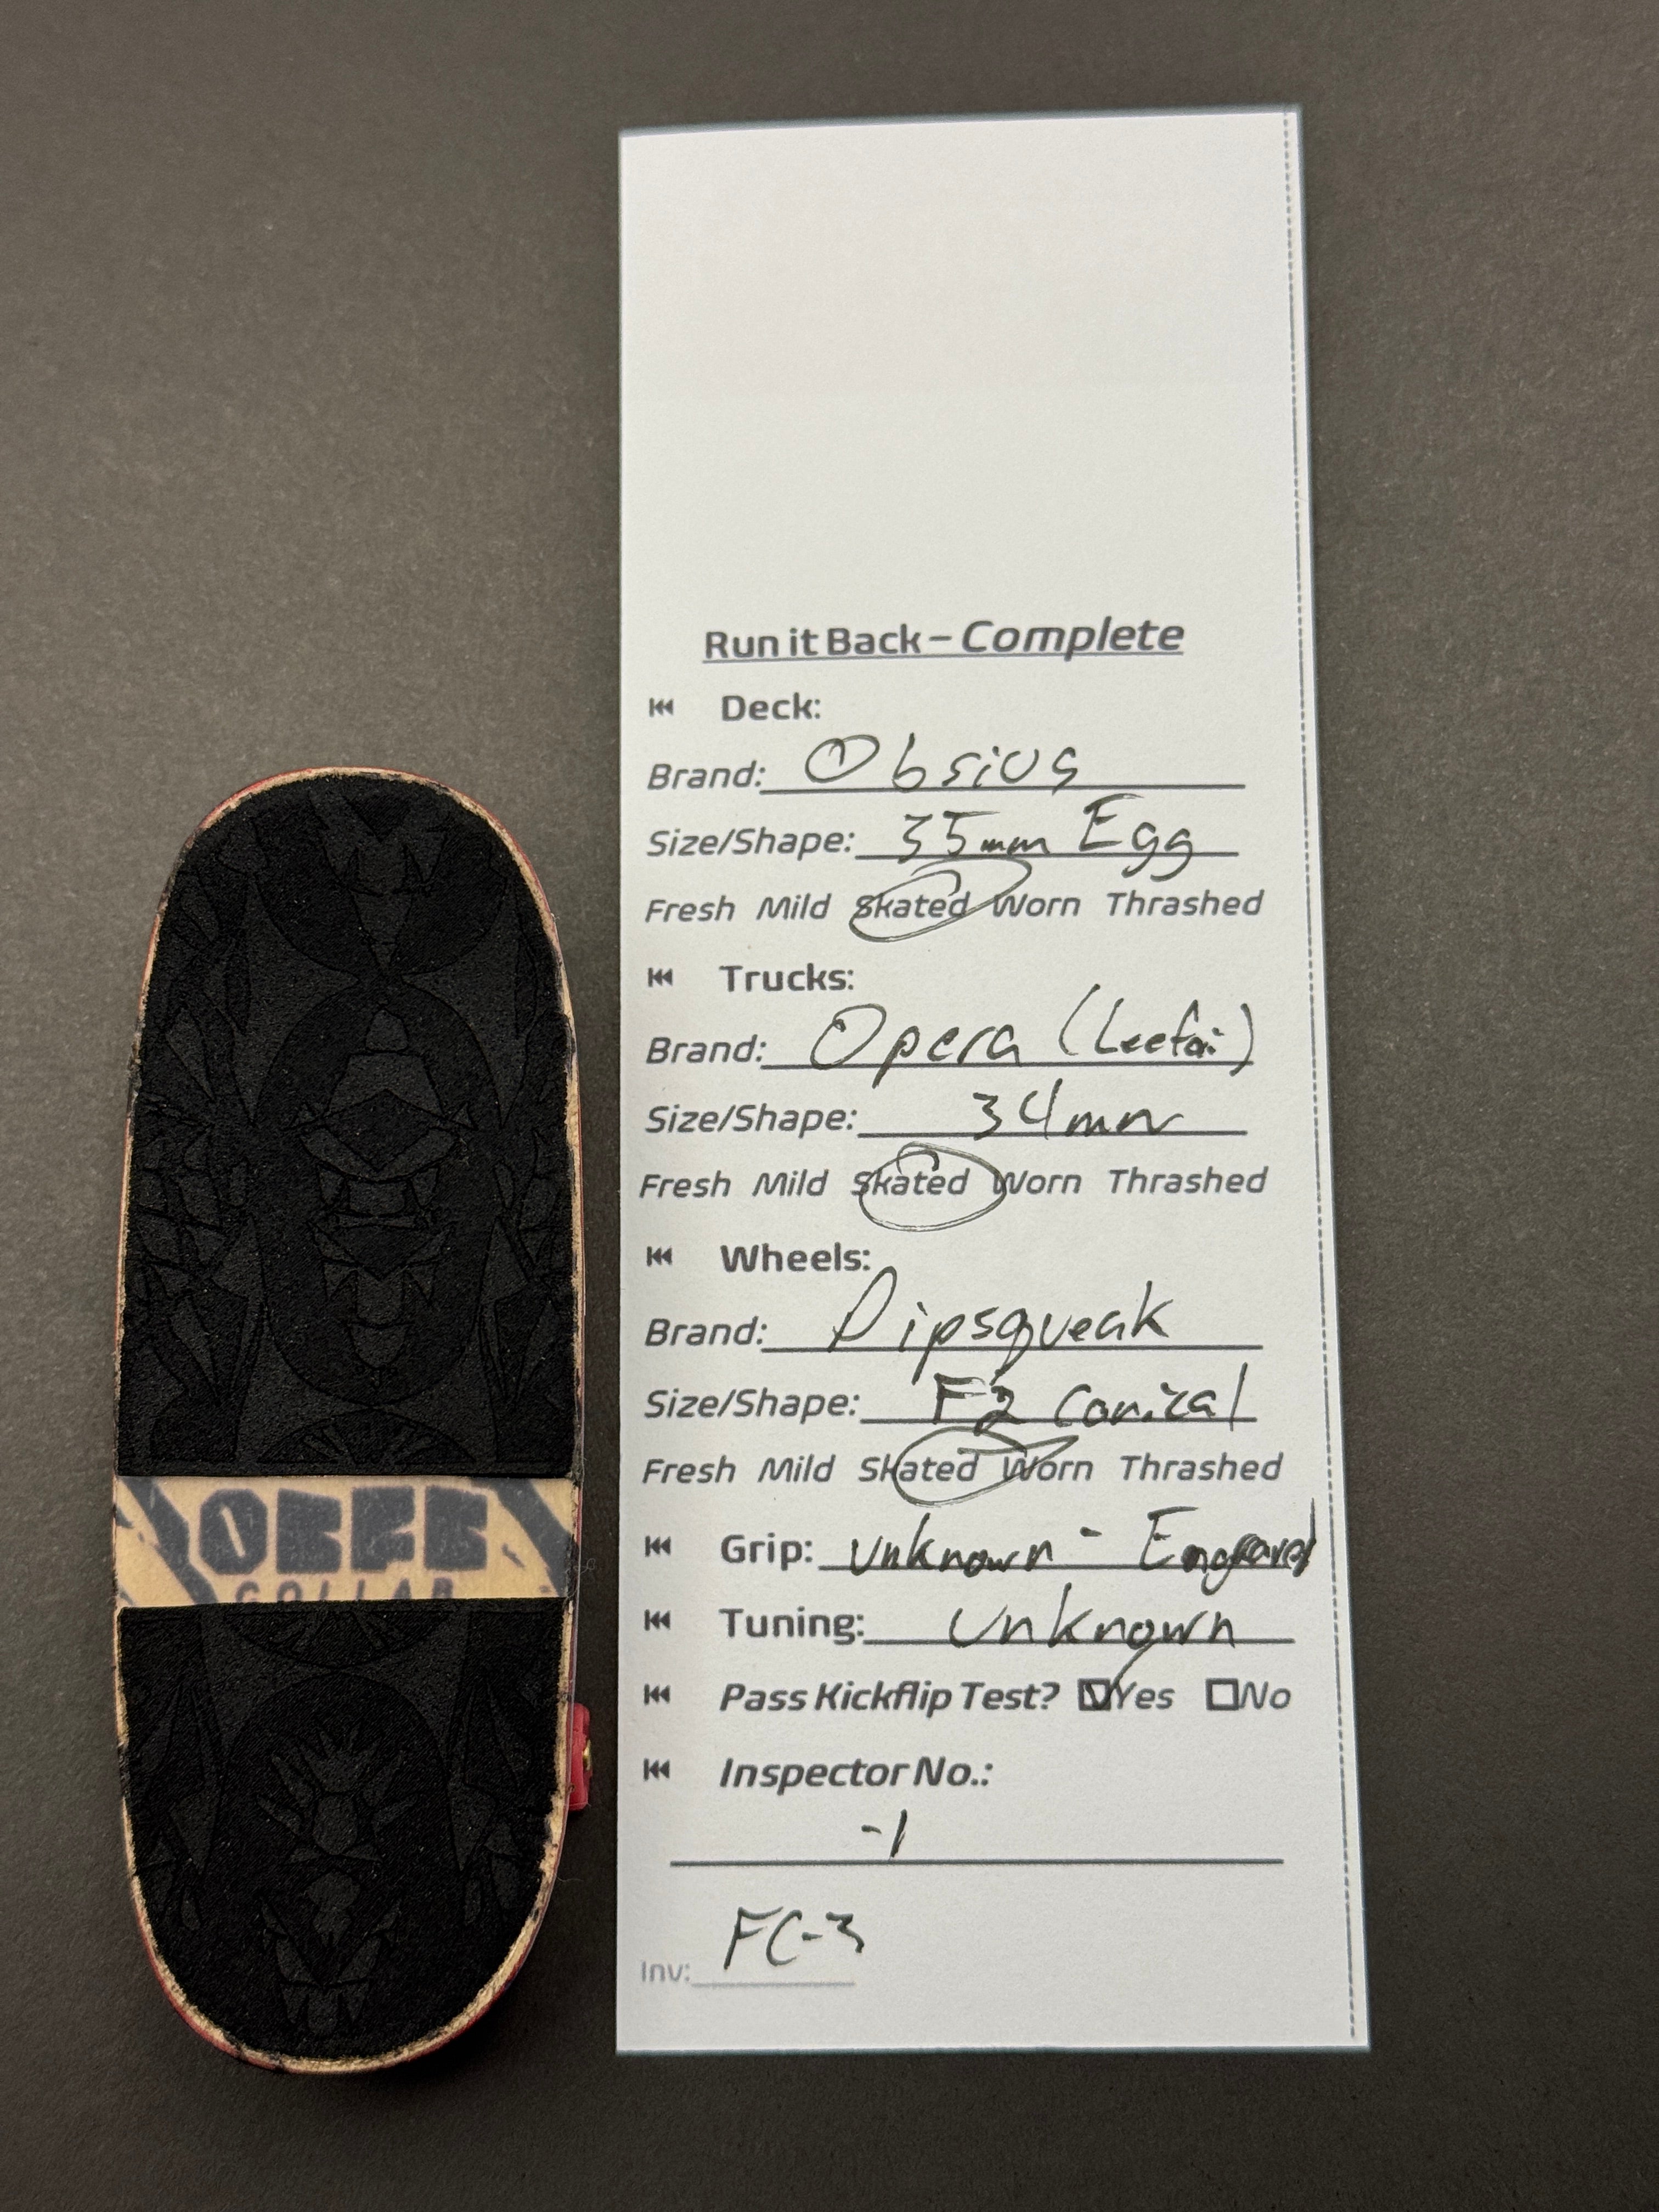 Run it Back – Complete
Deck:
Brand: Obsius
Size/Shape: 35mm Egg
Fresh Mild Skated Worn Thrashed
Trucks:
Brand: Opera (Leefai)
Size/Shape: 34mm
Fresh Mild Skated Worn Thrashed
Wheels:
Brand: Pipsqueak
Size/Shape: F2 Conical
Fresh Mild Skated Worn Thrashed
Grip: unknown - Engraved
Tuning: unknown
Pass Kickflip Test? Yes No
Inspector No.:
-1
FC-3
Inv:
COLLAB